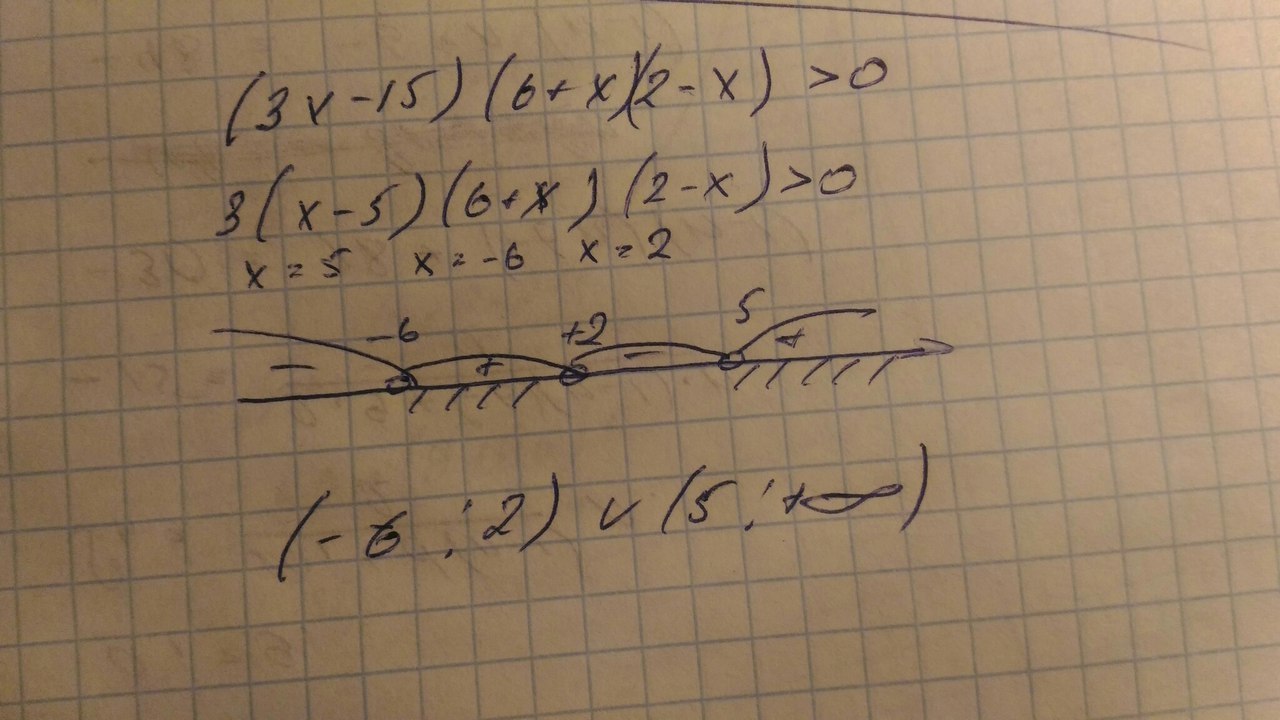 (3x-15)(6+x)(2-x) >0
3(x-5)(6+x)(2-x)>0
x=5 x=-6 x=2
-6 +2 5
- + - +
(-6;2) ∪ (5;+∞)